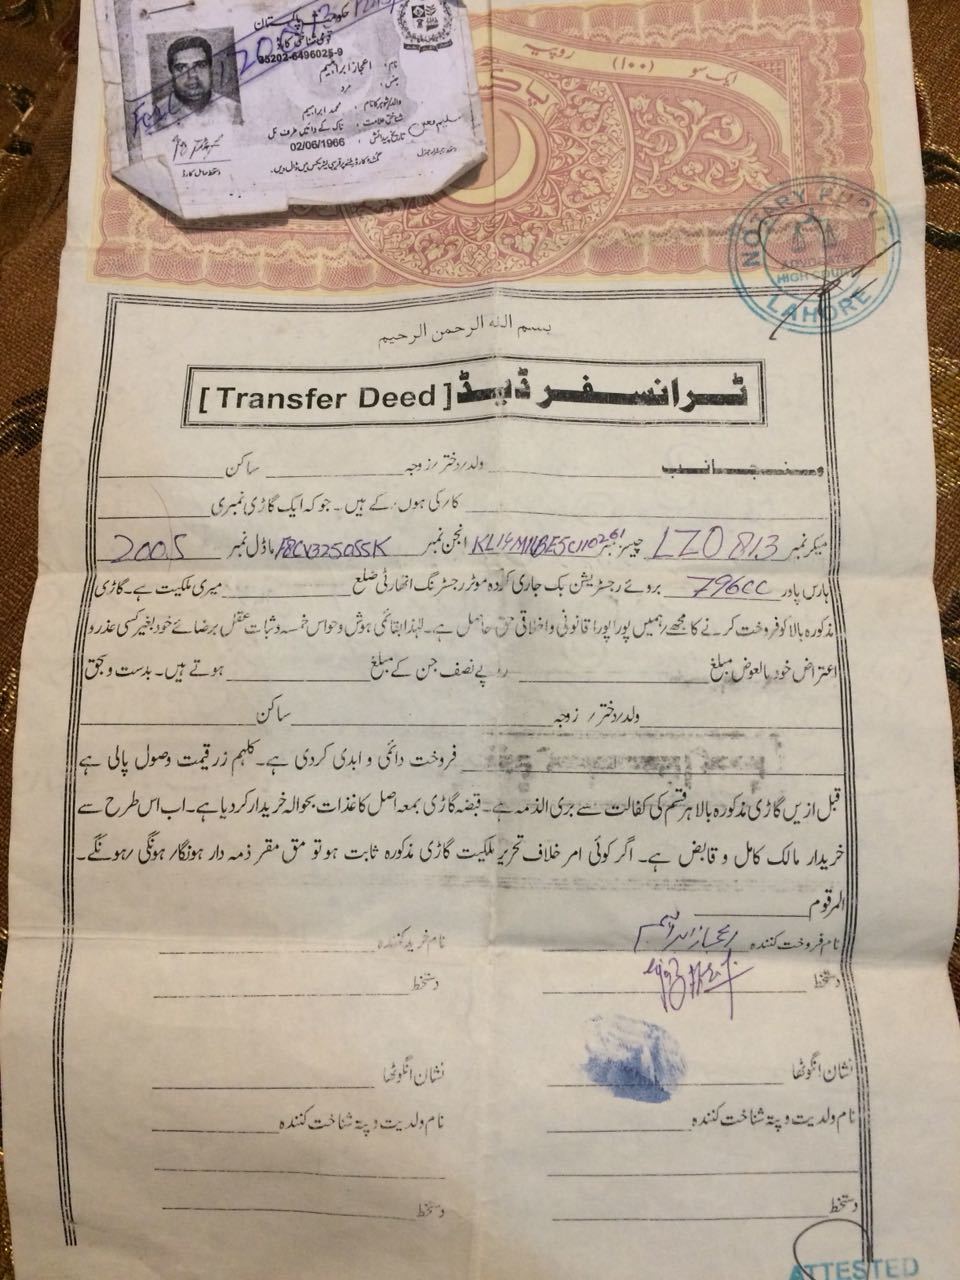 حکومت پاکستان
قومی شناختی کارڈ
35202-6496025-9
نام : اعجاز ابراہیم
جنس : مرد
والد/شوہر کا نام : محمد ابراہیم
شناختی علامت : ناک کے دائیں طرف تل
تاریخ پیدائش : 02/06/1966
گمشدہ کارڈ ملنے پر قریبی لیٹربکس میں ڈال دیں۔
ایک سو (۱۰۰) روپیہ
NOTARY PUBLIC
ADVOCATE
HIGH COURT
LAHORE
بسم الله الرحمن الرحيم
ٹرانسفر ڈیڈ [Transfer Deed]
منجانب ولد/دختر/زوجہ ساکن
کا/کی ہوں/کے ہیں۔ جو کہ ایک گاڑی نمبری
میکر نمبر LZO 813 چیسز نمبر انجن نمبر F8CV325055K ماڈل نمبر 2005
ہارس پاور 796cc بروئے رجسٹریشن بک جاری کردہ موٹر رجسٹرنگ اتھارٹی ضلع میری ملکیت ہے۔ گاڑی
مذکورہ بالا کو فروخت کرنے کا مجھے/ہمیں پورا پورا قانونی و اخلاقی حق حاصل ہے۔ لہٰذا بقائمی ہوش و حواس خمسہ و ثبات عقل برضائے خود بغیر کسی عذر و
اعتراض خود بالعوض مبلغ روپے نصف جن کے مبلغ ہوتے ہیں۔ بدست و بحق
ولد/دختر/زوجہ ساکن
فروخت دائمی و ابدی کر دی ہے۔ کلہم زر قیمت وصول پالی ہے
قبل ازیں گاڑی مذکورہ بالا ہر قسم کی کفالت سے بری الذمہ ہے۔ قبضہ گاڑی بمعہ اصل کاغذات بحوالہ خریدار کر دیا ہے۔ اب اس طرح سے
خریدار مالک کامل و قابض ہے۔ اگر کوئی امر خلاف تحریر ملکیت گاڑی مذکورہ ثابت ہو تو من مقر ذمہ دار ہونگا/ہونگی/ہونگے۔
المرقوم
نام فروخت کنندہ اعجاز ابراہیم نام خرید کنندہ
دستخط دستخط
نشان انگوٹھا نشان انگوٹھا
نام ولدیت و پتہ شناخت کنندہ نام ولدیت و پتہ شناخت کنندہ
دستخط دستخط
ATTESTED